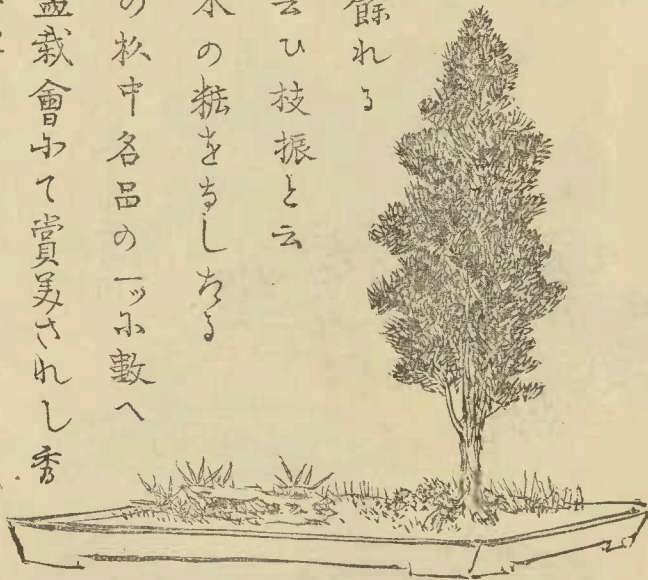 餘れる
云ひ枝振と云
木の粧をなしたる
の杦中名品の一ッに數へ
盆栽會にて賞美されし秀